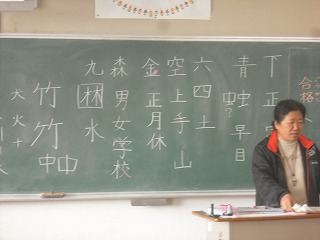 下正
青虫早目
虫?
六四土
空上手山
金正月休
森男女学校
九林水
竹竹中中
犬火十
合格